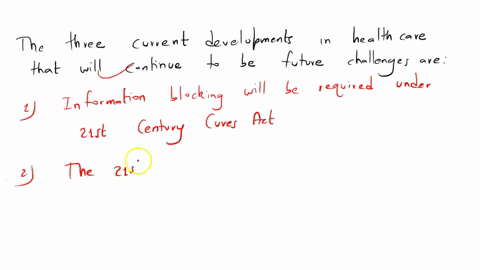 The three current developments in health care
that will continue to be future challenges are:
1) Information blocking will be required under
21st Century Cures Act
2) The 21s